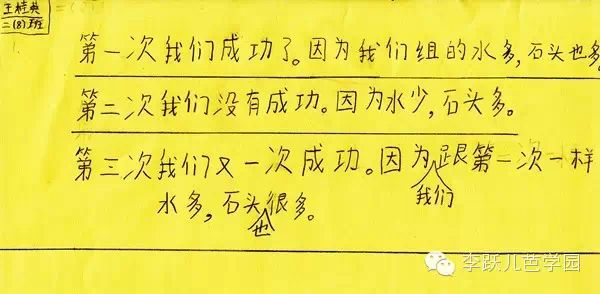 王桂英
二(8)班
第一次我们成功了。因为我们组的水多,石头也多
第二次我们没有成功。因为水少,石头多。
第三次我们又一次成功。因为我们跟第一次一样
水多,石头也很多。
李跃儿芭学园